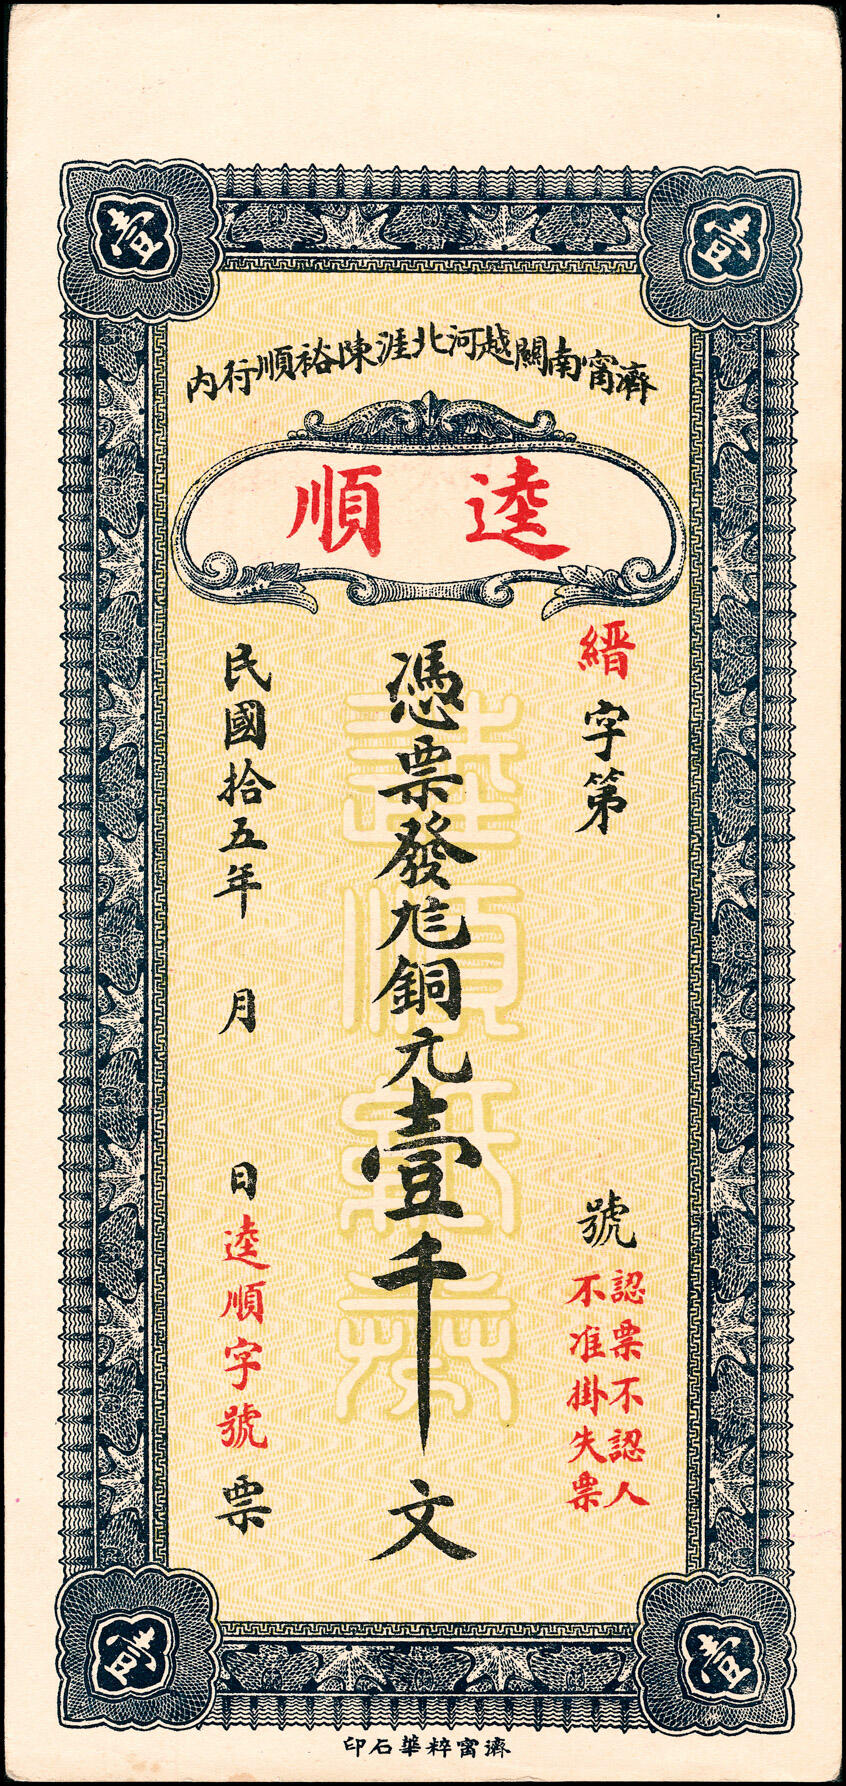 壹
壹
濟甯南關越河北涯陳裕順行內
逵順
縉字第 號
認票不認人
不准掛失票
憑票發兌銅元壹千文
民國拾五年 月 日逵順字號票
壹
壹
濟甯粹華石印